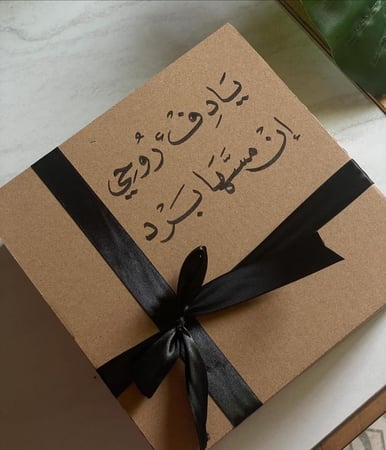 يَا دِفْءْ رُوْحِي
إنْ مسَّهَا بَرْد